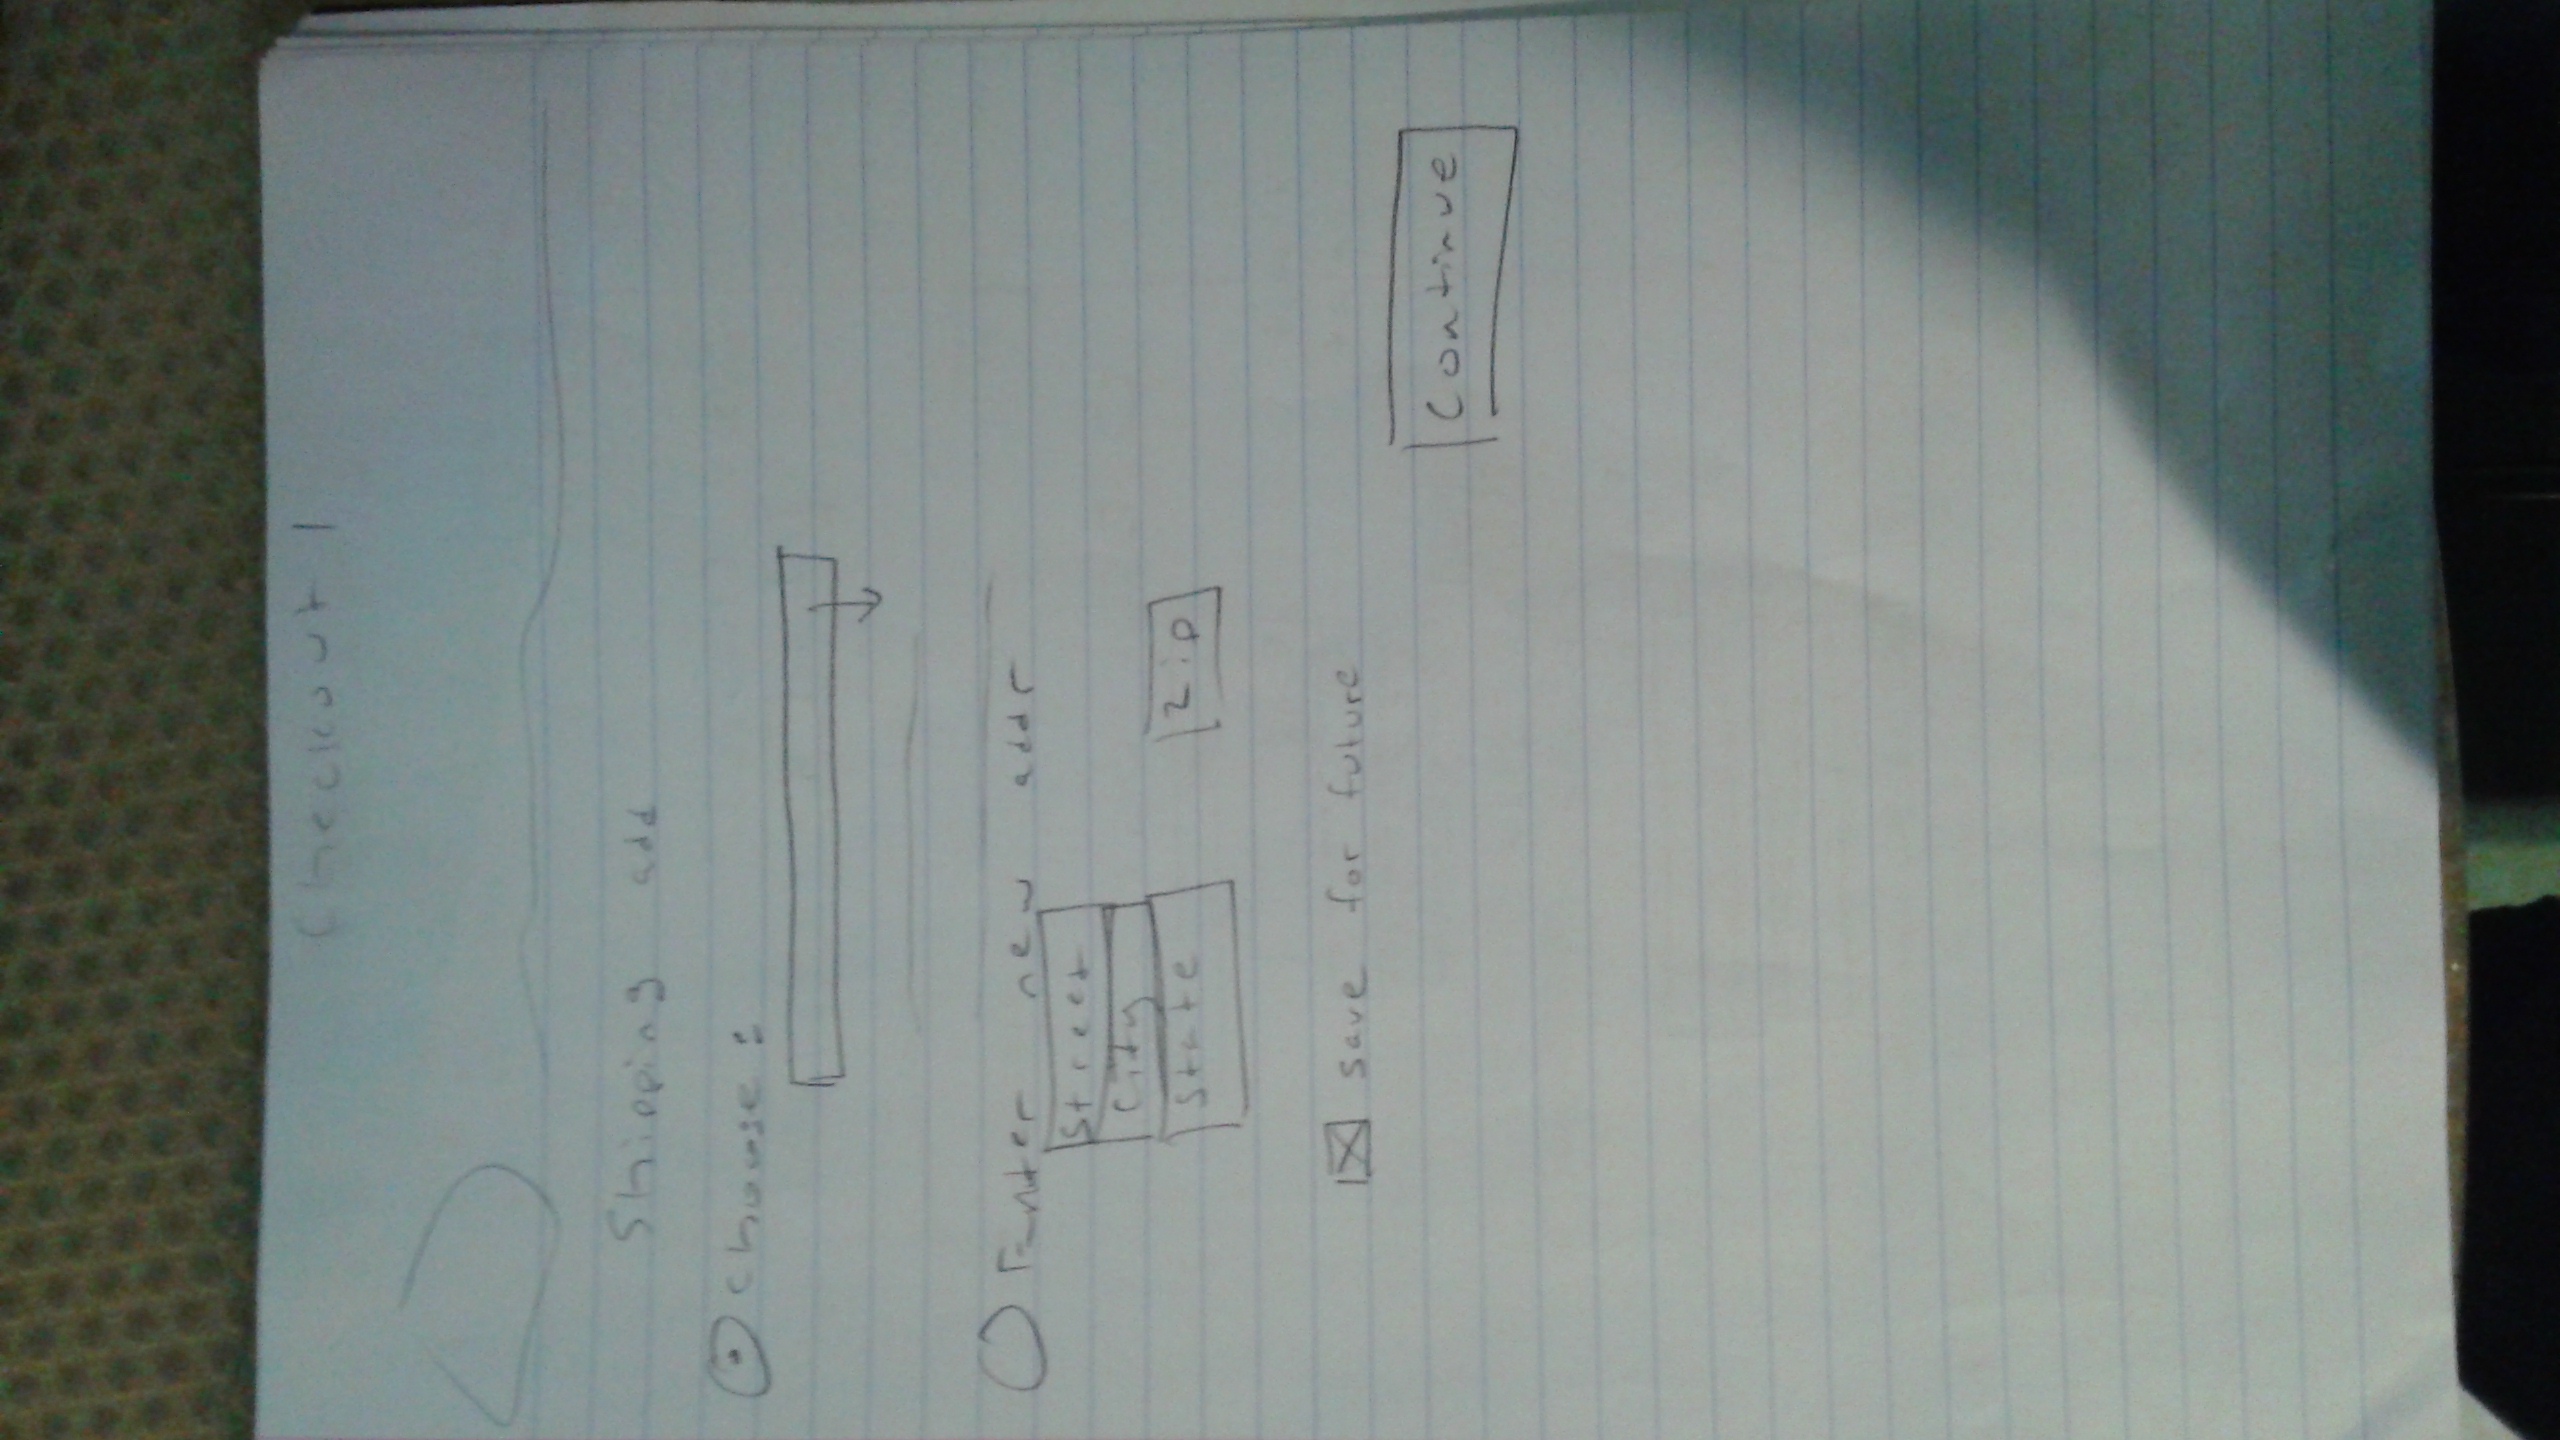 Checkout 1
Shipping add
Choose:
Enter new addr
Street
City
State Zip
save for future
Continue